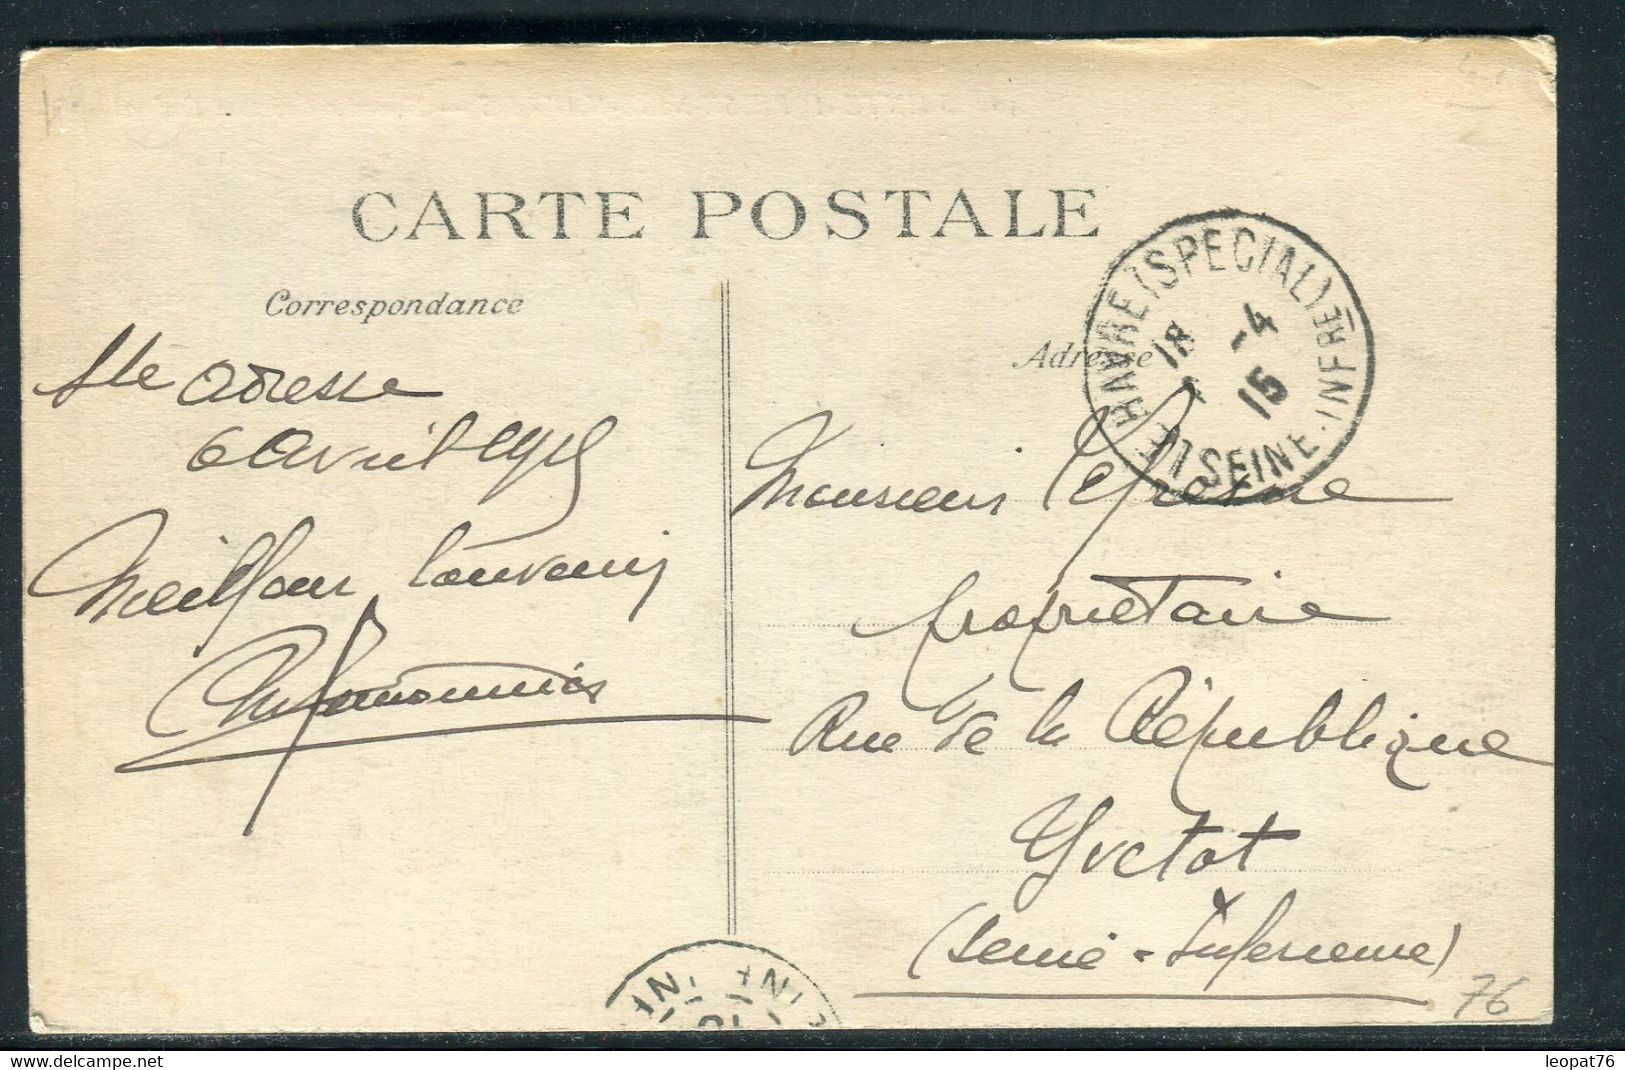 CARTE POSTALE
Correspondance
Ste Adresse
6 Avril 1915
Meilleur souvenir
Adresse
LE HAVRE (SPECIAL) SEINE-INFRE
18
-4
15
Monsieur Lefresne
propriétaire
Rue de la République
Yvetot
(Seine-Inférieure)
76
leopat76